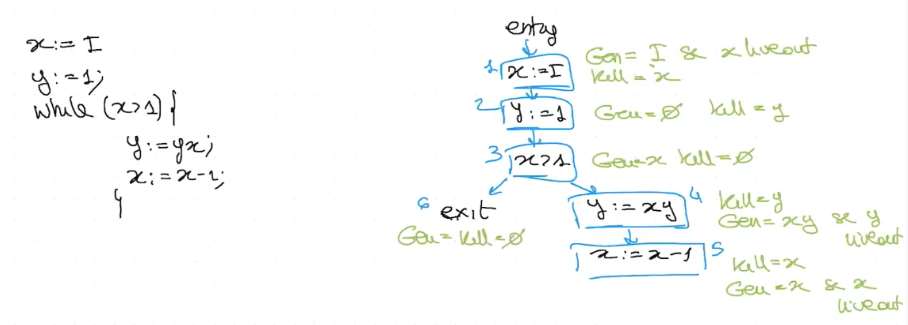 x:= I
y:=1;
while (x>1) {
y:=yx;
x:=x-1;
}
entry
1 x:=I
Gen= I se x liveout
kill = x
2 y:=1
Gen=∅ kill=y
3 x>1
Gen=x kill=∅
6 exit
Gen=kill=∅
y:=xy 4
kill=y
Gen=xy se y
liveout
x:=x-1 5
kill=x
Gen=x se x
liveout